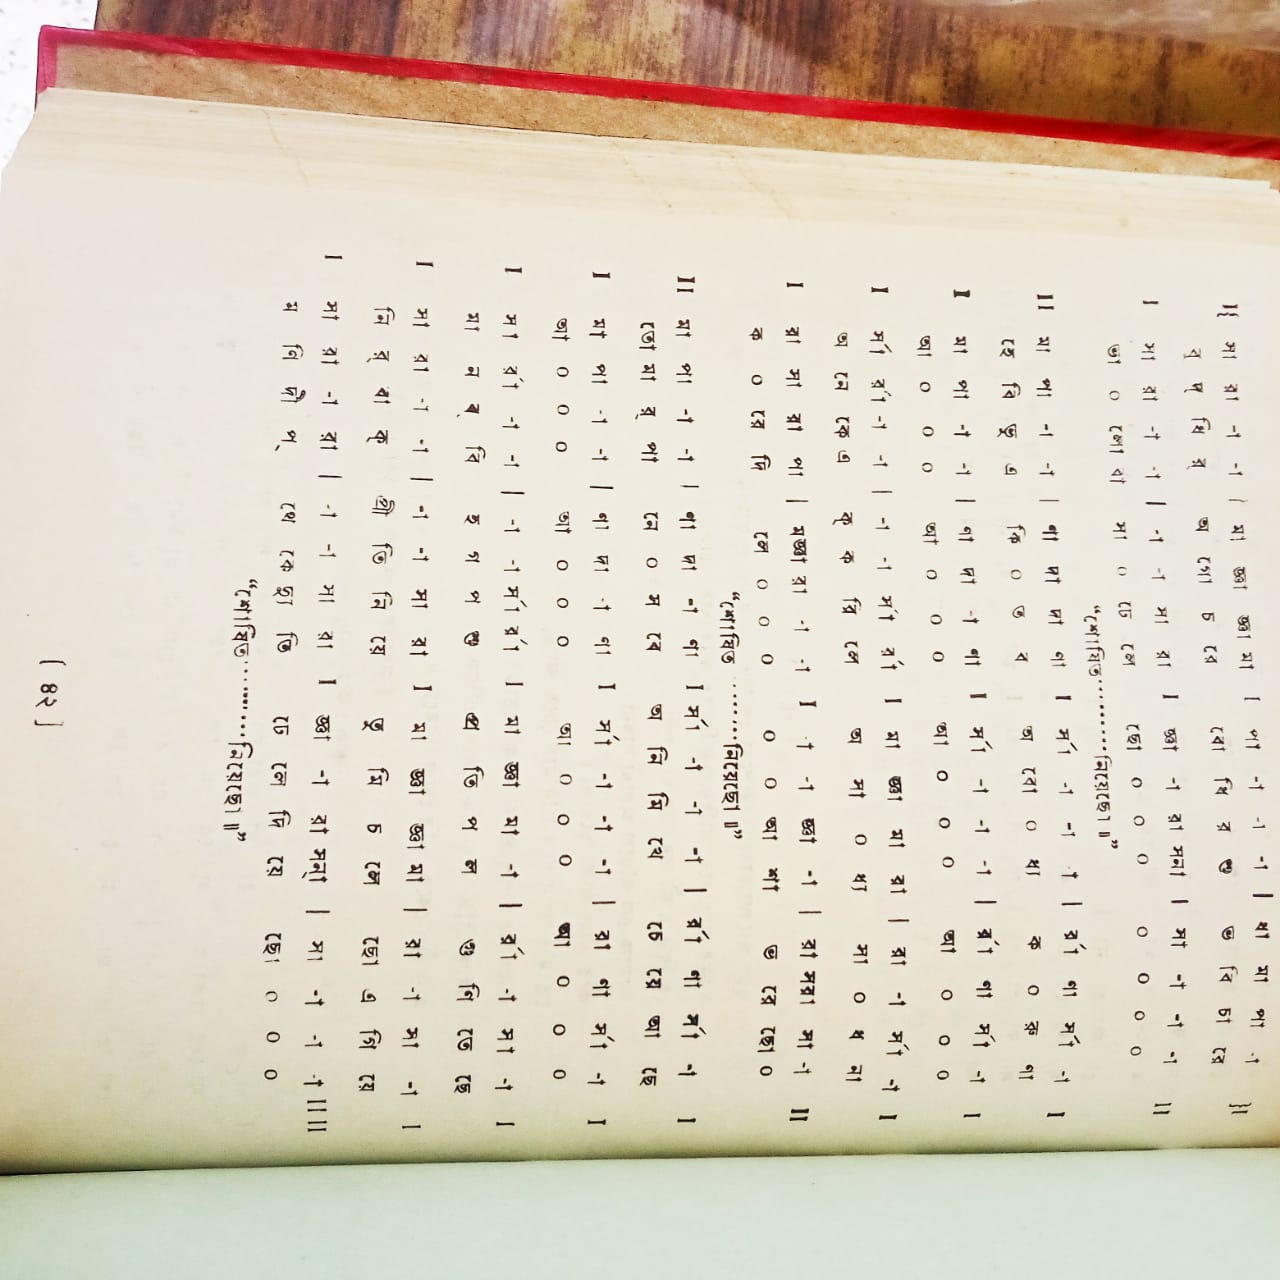 I{ সা রা -া -া | মা জ্ঞা জ্ঞা মা I পা -া -া -া | ধা মা পা -া }I
বু দ্ধি র্ অ গো চ রে বো ধি র শু ভ বি চা রে
I সা রা -া -া | -া -া সা রা I জ্ঞা -া রা সনা | সা -া -া -া II
ভা ০ লো বা সা ০ ঢে লে ছো ০ ০ ০ ০ ০ ০ ০
“শোধিত..........নিয়েছো॥”
II মা পা -া -া | পা দা দা পা I র্সা -া -া -া | র্রা পা র্সা -া I
হে বি ভু এ কি ০ ত ব অ বো ০ ধ্য ক ০ রু ণা
I মা পা -া -া | পা দা -া পা I র্সা -া -া -া | র্রা পা র্সা -া I
আ ০ ০ ০ আ ০ ০ ০ আ ০ ০ ০ আ ০ ০ ০
I র্সা র্রা -া -া | -া -া র্সা র্রা I মা জ্ঞা মা রা | রা -া র্সা -া I
অ নে কে এ ক্ ক রি লে অ সা ০ ধ্য সা ০ ধ না
I রা সা রা পা | মজ্ঞা রা -া -া I -া -া জ্ঞা -া | রা সরা সা -া II
ক ০ রে দি লে ০ ০ ০ ০ ০ আ শা ভ রে ছো ০
“শোধিত.......নিয়েছো॥”
II মা পা -া -া | পা দা -া পা I র্সা -া -া -া | র্রা পা র্সা -া I
তো মা র্ পা নে ০ স বে অ নি মি খে চে য়ে আ ছে
I মা পা -া -া | পা দা -া পা I র্সা -া -া -া | রা পা র্সা -া I
আ ০ ০ ০ আ ০ ০ ০ আ ০ ০ ০ আ ০ ০ ০
I সা র্রা -া -া | -া -া র্সা র্রা I মা জ্ঞা মা -া | র্রা -া সা -া I
মা ন ব্ বি হ গ প শু স্থ তি প ল গু ণি তে ছে
I সা রা -া -া | -া -া সা রা I মা জ্ঞা জ্ঞা মা | রা -া সা -া I
নি র্ বা ক্ প্রী তি নি য়ে তু মি চ লে ছো এ গি য়ে
I সা রা -া রা | -া -া সা রা I জ্ঞা -া রা সনা | সা -া -া -া II II
ম ণি দী প্ রে খে ছা তি ঢে লে দি য়ে ছো ০ ০ ০
“শোধিত.......নিয়েছো॥”
[ ৪২ ]